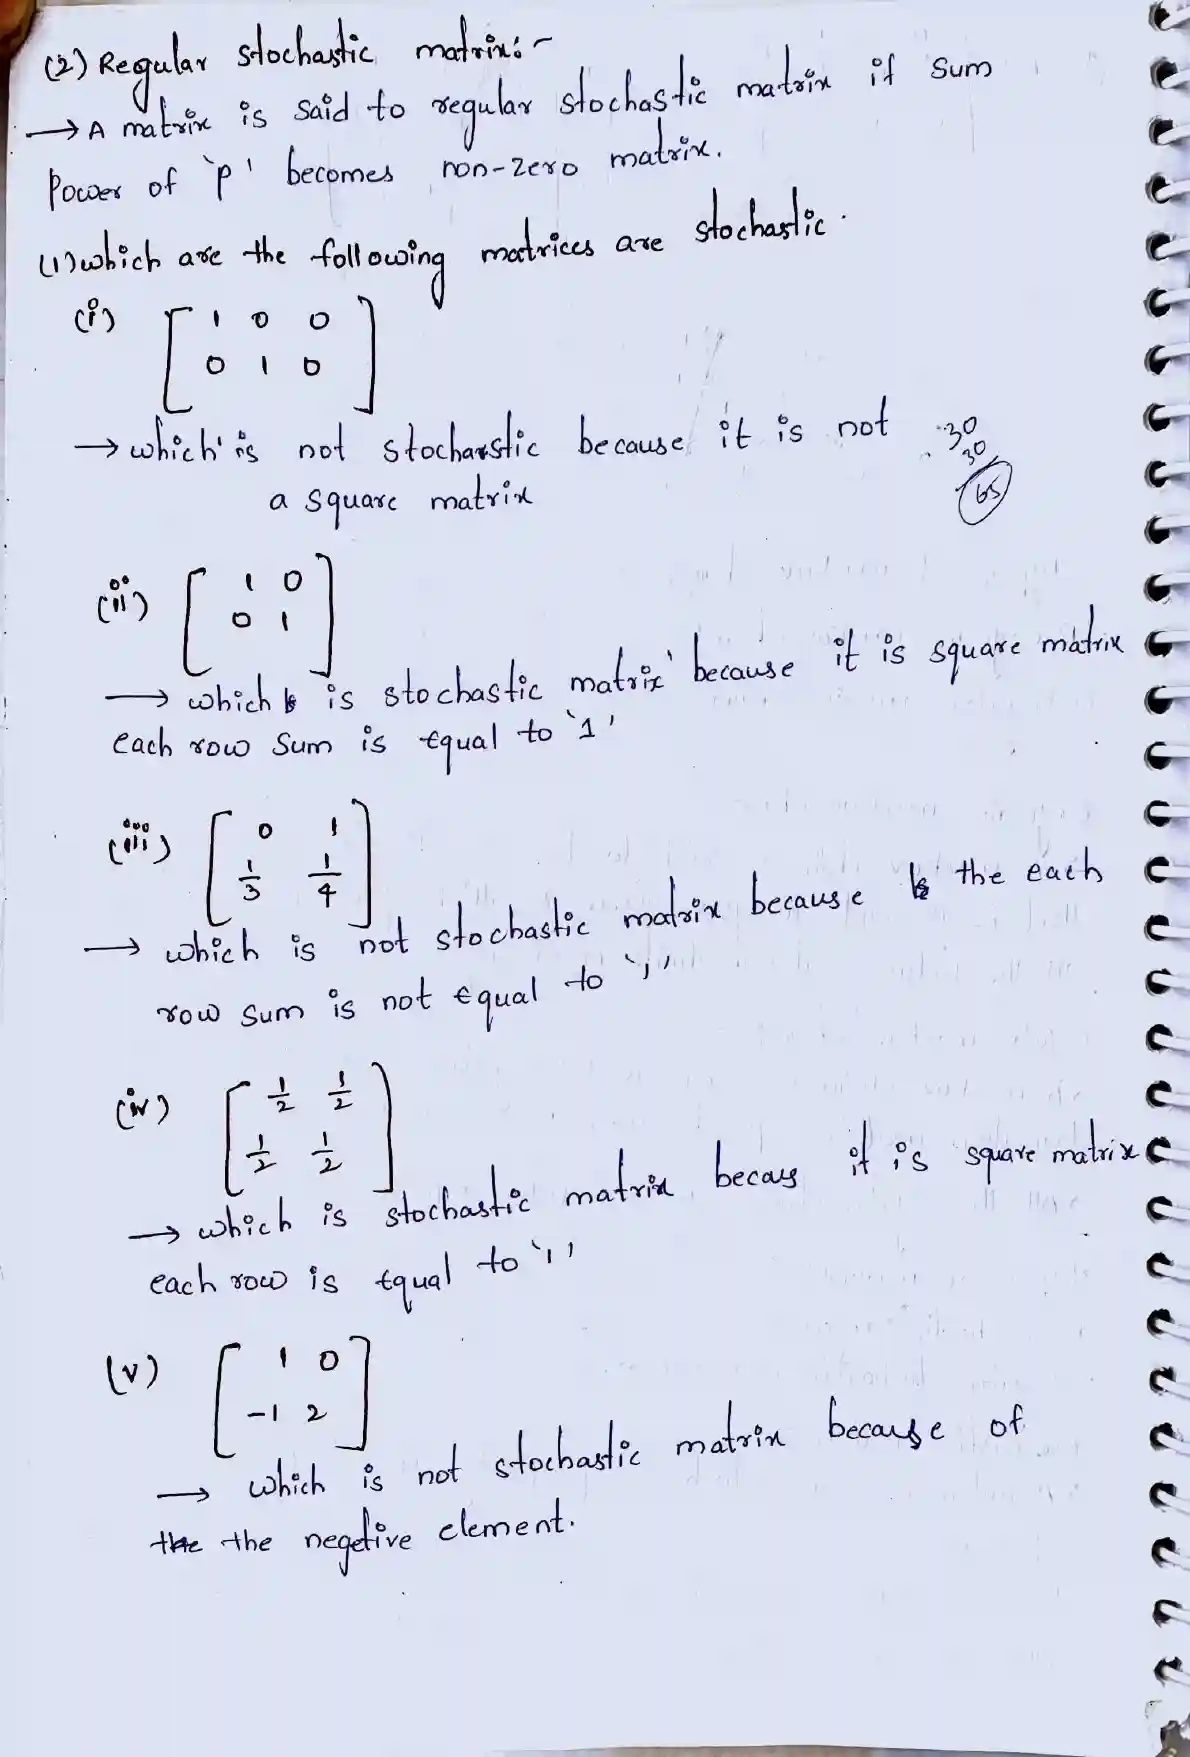 (2) Regular stochastic matrix:-
→ A matrix is said to regular stochastic matrix if sum
Power of 'p' becomes non-zero matrix.
(1) which are the following matrices are stochastic.
(i) [ 1 0 0
0 1 0 ]
→ which is not stochastic because it is not
a square matrix
30
30
65
(ii) [ 1 0
0 1 ]
→ which is stochastic matrix because it is square matrix
each row sum is equal to '1'
(iii) [ 0 1
1/3 1/4 ]
→ which is not stochastic matrix because the each
row sum is not equal to '1'
(iv) [ 1/2 1/2
1/2 1/2 ]
→ which is stochastic matrix becaus it is square matrix
each row is equal to '1'
(v) [ 1 0
-1 2 ]
→ which is not stochastic matrix because of
the the negetive element.